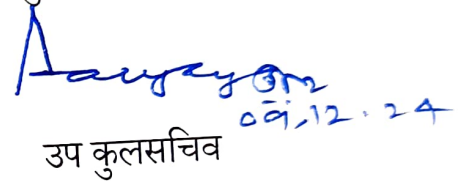 09.12.24
उप कुलसचिव